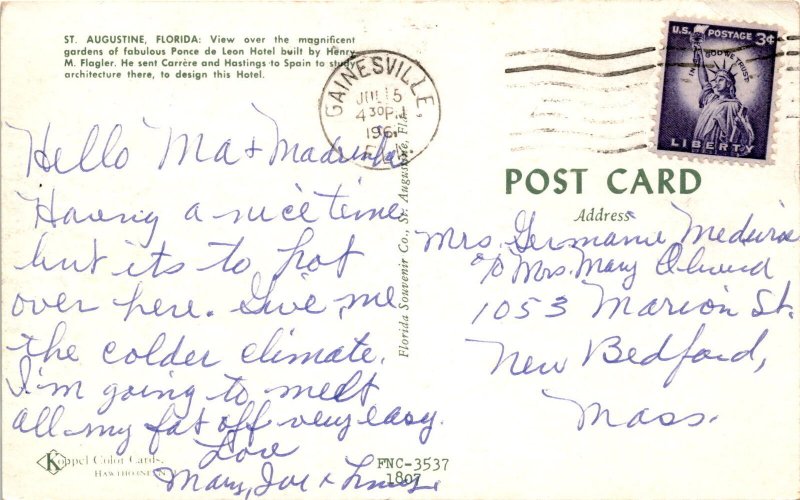 ST. AUGUSTINE, FLORIDA: View over the magnificent
gardens of fabulous Ponce de Leon Hotel built by Henry
M. Flagler. He sent Carrère and Hastings to Spain to study
architecture there, to design this Hotel.
GAINESVILLE,
JUL 5
4 30 P
196
U.S. POSTAGE 3¢
IN GOD WE TRUST
LIBERTY
Hello Ma + Madrinha
Having a nice time
but its to hot
over here. Give me
the colder climate.
I'm going to melt
all my fat off very easy.
Love
Mary, Joe +
Florida Souvenir Co., St. Augustine, Fla.
POST CARD
Address
Mrs. Germaine Medeiros
c/o Mrs. Mary
1053 Marion St.
New Bedford,
Mass.
Koppel Color Cards,
HAWTHORNE, N.J.
FNC-3537
1807